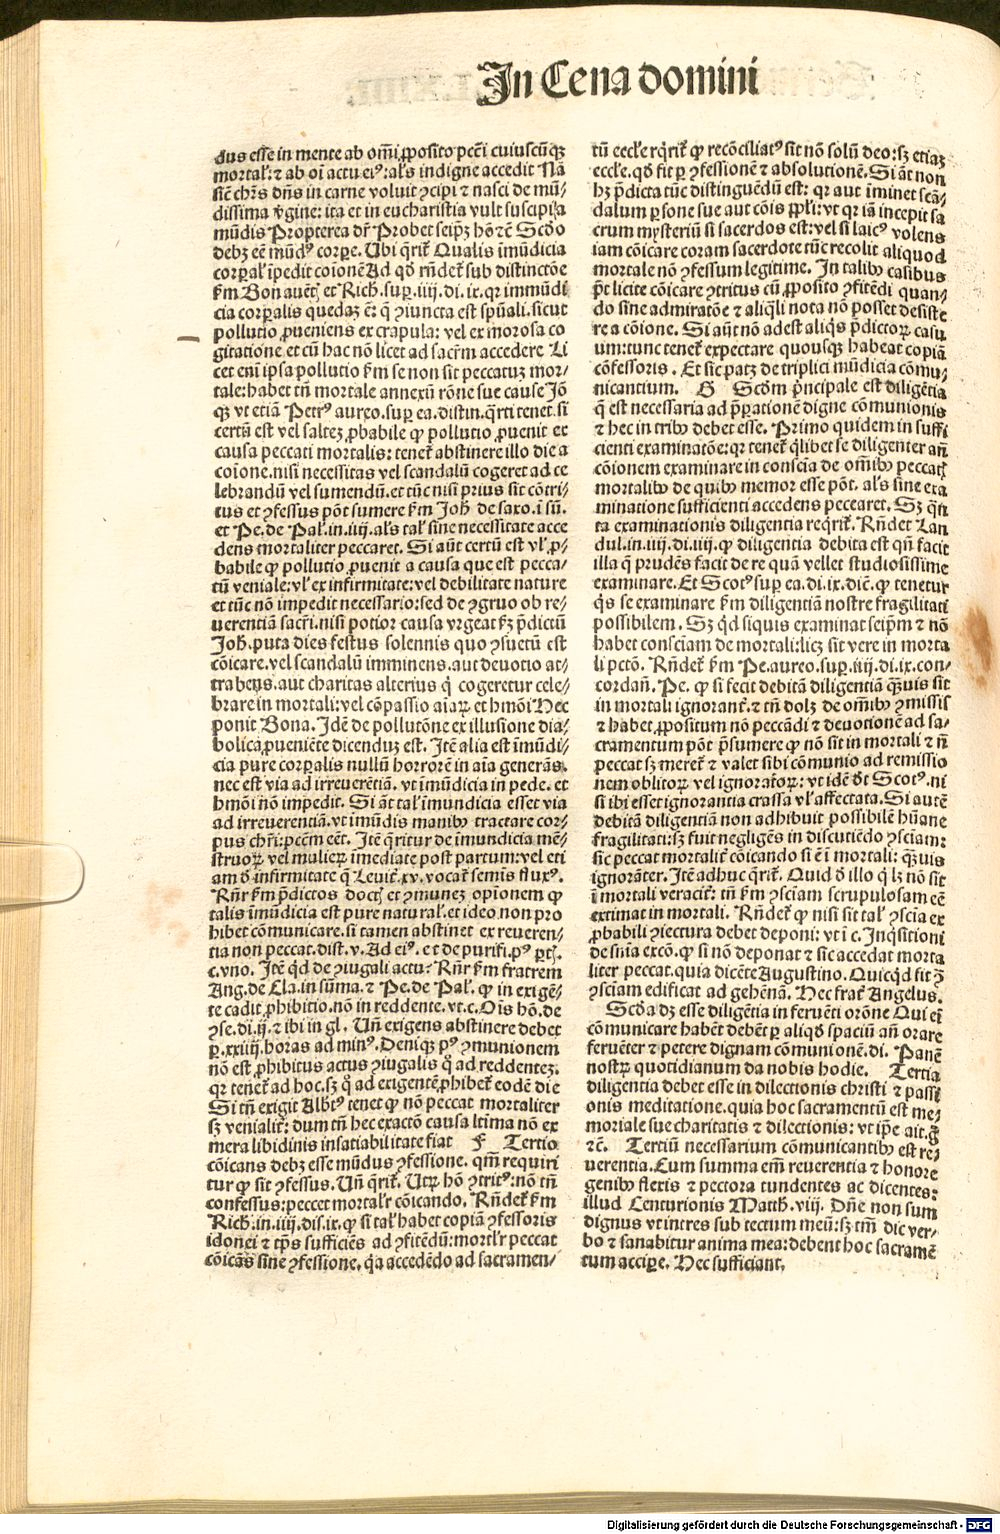 In Cena domini
dus esse in mente ab om̄i ꝓposito pctī cuiuscūqꝫ
mortal': ⁊ ab oī actu eiꝰ: al's indigne accedit Nā
sic̄ chrs̄ dn̄s in carne voluit ꝯcipi ⁊ nasci de mū⸗
dissima v̄gine: ita et in eucharistia vult suscipi a
mūdis Propterea dr̄ Probet seip̄ꝫ hō ⁊c̄ Scd̄o
debꝫ eē mūdꝰ corpꝑe. Ubi q̄rit̄ Qualis īmūdicia
corꝑal' īpedit coīonē Ad qd̄ rn̄det̄ sub distinctōe
km̄ Bonauēt̄ et Rich̄. suꝑ .iiij. di. ix. qꝛ immūdi
cia corꝑalis quedaꝫ ē: q̄ ꝯiuncta est spūali. sicut
pollutio ꝓueniens ex crapula: vel ex morosa co
gitatione. et cū hac nō licet ad sacr̄m accedere Li
cet eni ipsa pollutio km̄ se non sit peccatuꝫ mor⸗
tale: habet tn̄ mortale annexū rōne sue cause Jō
qꝫ vt etiā Petrꝰ aureo. suꝑ ea. distin. q̄rti tenet. si
certū est vel salteꝫ ꝓbabile ꝙ pollutio ꝓuenit ex
causa peccati mortalis: tenet̄ abstinere illo die a
coīone. nisi necessitas vel scandalū cogeret ad ce
lebrandū vel sumendū. et tūc nisi prius sit cōtri⸗
tus et ꝯfessus pōt sumere km̄ Joh̄. de saxo. ī sū.
et Pe. de Pal'. in. iiij. al's tal' sine necessitate acce
dens mortaliter peccaret. Si aūt certū est vl' ꝓ⸗
babile ꝙ pollutio ꝓuenit a causa que est pecca⸗
tū veniale: vl' ex infirmitate: vel debilitate nature
et tūc nō impedit necessario: sed de ꝯgruo ob re⸗
uerentiā sacr̄i. nisi potior causa vrgeat km̄ p̄dictū
Joh̄. puta dies festus solennis quo ꝯsuetū est
cōicare. vel scandalū imminens. aut deuotio at⸗
trahens. aut charitas alterius q̄ cogeretur cele⸗
brare in mortali: vel cōpassio aīaꝝ et hmōi Hec
ponit Bona. Idē de pollutōne ex illusione dia⸗
bolica ꝓueniēte dicenduꝫ est. Itē alia est īmūdi⸗
cia pure corꝑalis nullū horrorē in aīa generās.
nec est via ad irreuerētiā. vt īmūdicia in pede. et
hmōi nō impedit. Si āt tal' īmundicia esset via
ad irreuerentiā. vt īmūdis manibꝰ tractare cor⸗
pus chr̄i: pctm̄ eēt. Itē q̄ritur de īmundicia mē⸗
struoꝝ vel mulieꝝ īmediate post partum: vel eti
am d̄ infirmitate q̄ Leuit̄. xv. vocat̄ semis fluxꝰ.
Rn̄r km̄ p̄dictos doct̄ et ꝯmuneꝫ opīonem ꝙ
talis īmūdicia est pure natural'. et ideo non pro
hibet cōmunicare. si tamen abstinet ex reueren⸗
tia non peccat. dist. v. Ad eiꝰ. et de purifi. pꝰ ꝑt̄.
c. vno. Itē qd̄ de ꝯiugali actu: Rn̄r km̄ fratrem
Ang. de Cla. in sūma. ⁊ Pe. de Pal'. ꝙ in exigē⸗
te cadit ꝓhibitio. nō in reddente. vt. c. Oīs hō. de
ꝯse. di. ij. ⁊ ibi in gl. Un̄ exigens abstinere debet
ꝑ .xxiiij. horas ad minꝰ. Deniqꝫ pꝰ ꝯmunionem
nō est ꝓhibitus actus ꝯiugalis qͦ ad reddenteꝫ.
qꝛ tenet̄ ad hoc. sꝫ qͦ ad exigentē ꝓhibet̄ eodē die
Si tn̄ exigit Albt̄ꝰ tenet ꝙ nō peccat mortaliter
sꝫ venialit̄: dum tn̄ hec exactō causa ltīma nō ex
mera libidinis insatiabilitate fiat F Tertio
cōicans debꝫ esse mūdus ꝯfessione. qm̄ requiri
tur ꝙ sit ꝯfessus. Un̄ q̄rit̄. Utꝝ hō ꝯtritꝰ: nō tn̄
confessus: peccet mortal'r cōicando. Rn̄det̄ km̄
Rich̄. in. iiij. dis. ix. ꝙ si tal' habet copiā ꝯfessoris
idonei ⁊ tp̄s sufficiēs ad ꝯfitēdū: mortl'r peccat
cōicās sine ꝯfessione. qa accedēdo ad sacramen⸗
tū eccl'e rq̄rit̄ ꝙ recōciliatꝰ sit nō solū deo: sꝫ etiaꝫ
eccl'e. qd̄ fit ꝑ ꝯfessionē ⁊ absolutionē. Si āt non
hꝫ p̄dicta tūc distinguēdū est: qꝛ aut īminet scā⸗
dalum ꝑsone sue aut cōis ppl'i: vt qꝛ iā incepit sa
crum mysteriū si sacerdos est: vel si laicꝰ volens
iam cōicare coram sacerdote tūc recolit aliquod
mortale nō ꝯfessum legitime. In talibꝰ casibus
pt̄ licite cōicare ꝯtritus cū ꝓposito ꝯfitēdi quan⸗
do sine admiratōe ⁊ aliq̄li nota nō posset desiste
re a cōione. Si aūt nō adest aliqs̄ p̄dictoꝝ casu
um: tunc tenet̄ expectare quousqꝫ habeat copiā
cōfessoris. Et sic patꝫ de triplici mūdicia cōmu⸗
nicantium. G Scdm̄ p̄ncipale est diligētia
q̄ est necessaria ad p̄ꝑationē digne cōmunionis
⁊ hec in tribꝰ debet esse. Primo quidem in suffi
cienti examinatōe: qꝛ tenet̄ q̄libet se diligenter an̄
cōionem examinare in conscīa de om̄ibꝰ peccat̄
mortalibꝰ de quibꝰ memor esse pōt. al's sine exa
minatione sufficienti accedens peccaret. Sꝫ q̄n
ta examinationis diligentia req̄rit̄. Rn̄det Lan
dul. in. iiij. di. iiij. ꝙ diligentia debita est qn̄ facit
illa q̄ prudēs facit de re quā vellet studiosissime
examinare. Et Scotꝰ suꝑ ea. di. ix. dic̄. ꝙ tenetur
qs̄ se examinare km̄ diligentiā nostre fragilitati
possibilem. Sꝫ qd̄ si quis examinat seip̄m ⁊ nō
habet consciam de mortali: licꝫ sit vere in morta
li pctō. Rn̄det̄ km̄ Pe. aureo. suꝑ. iiij. di. ix. con⸗
cordan̄. Pe. ꝙ si fecit debitā diligentiā q̄ꝫuis sit
in mortali ignorant̄. ⁊ tn̄ dolꝫ de om̄ibꝰ ꝯmissis
⁊ habet ꝓpositum nō peccādi ⁊ deuotionē ad sa⸗
cramentum pōt p̄sumere ꝙ nō sit in mortali ⁊ n̄
peccat sꝫ meret̄ ⁊ valet sibi cōmunio ad remissio
nem oblitoꝝ vel ignoratoꝝ: vt idē dt̄ Scotꝰ. ni
si ibi esset ignorantia crassa vl' affectata. Si autē
debitā diligentiā non adhibuit possibilē hūane
fragilitati: sꝫ fuit negligēs in discutiēdo ꝯsciam:
sic peccat mortalit̄ cōicando si ē ī mortali: q̄ꝫuis
ignorāter. Itē adhuc q̄rit̄. Quid d̄ illo q̄ lꝫ nō sit
ī mortali veracit̄: tn̄ km̄ ꝯsciam scrupulosam eē
extimat in mortali. Rn̄det̄ ꝙ nisi sit tal' ꝯscīa ex
ꝓbabili ꝯiectura debet deponi: vt ī c. Inq̄sitioni
de sn̄ia excō. ꝙ si nō deponat ⁊ sic accedat morta
liter peccat. quia dicēte Augustino. Quicqd̄ fit ꝯͣ
ꝯsciam edificat ad gehēnā. Hec frat̄ Angelus.
Scd̄a dꝫ esse diligētia in feruēti orōne Qui eī
cōmunicare habēt debēt ꝑ aliqd̄ spaciū an̄ orare
feruēter ⁊ petere dignam cōmunionē. di. Panē
nostꝝ quotidianum da nobis hodie. Tertia
diligentia debet esse in dilectionis christi ⁊ passi
onis meditatione. quia hoc sacramentū est me⸗
moriale sue charitatis ⁊ dilectionis: vt ip̄e ait. ḡ
⁊c̄. Tertiū necessarium cōmunicantibꝰ est re⸗
uerentia. Cum summa em̄ reuerentia ⁊ honore
genibꝰ flexis ⁊ pectora tundentes ac dicentes:
illud Centurionis Matth̄. viij. Dn̄e non sum
dignus vt intres sub tectum meū: sꝫ tm̄ dic ver⸗
bo ⁊ sanabitur anima mea: debent hoc sacramē
tum acciꝑe. Hec sufficiant.
Digitalisierung gefördert durch die Deutsche Forschungsgemeinschaft - DFG